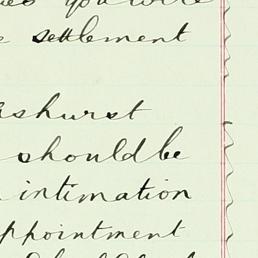 you were
settlement
ashurst
should be
intimation
ppointment